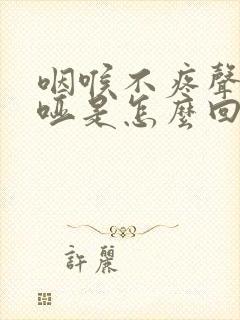 咽喉不疼聲
啞是怎麼回
許麗